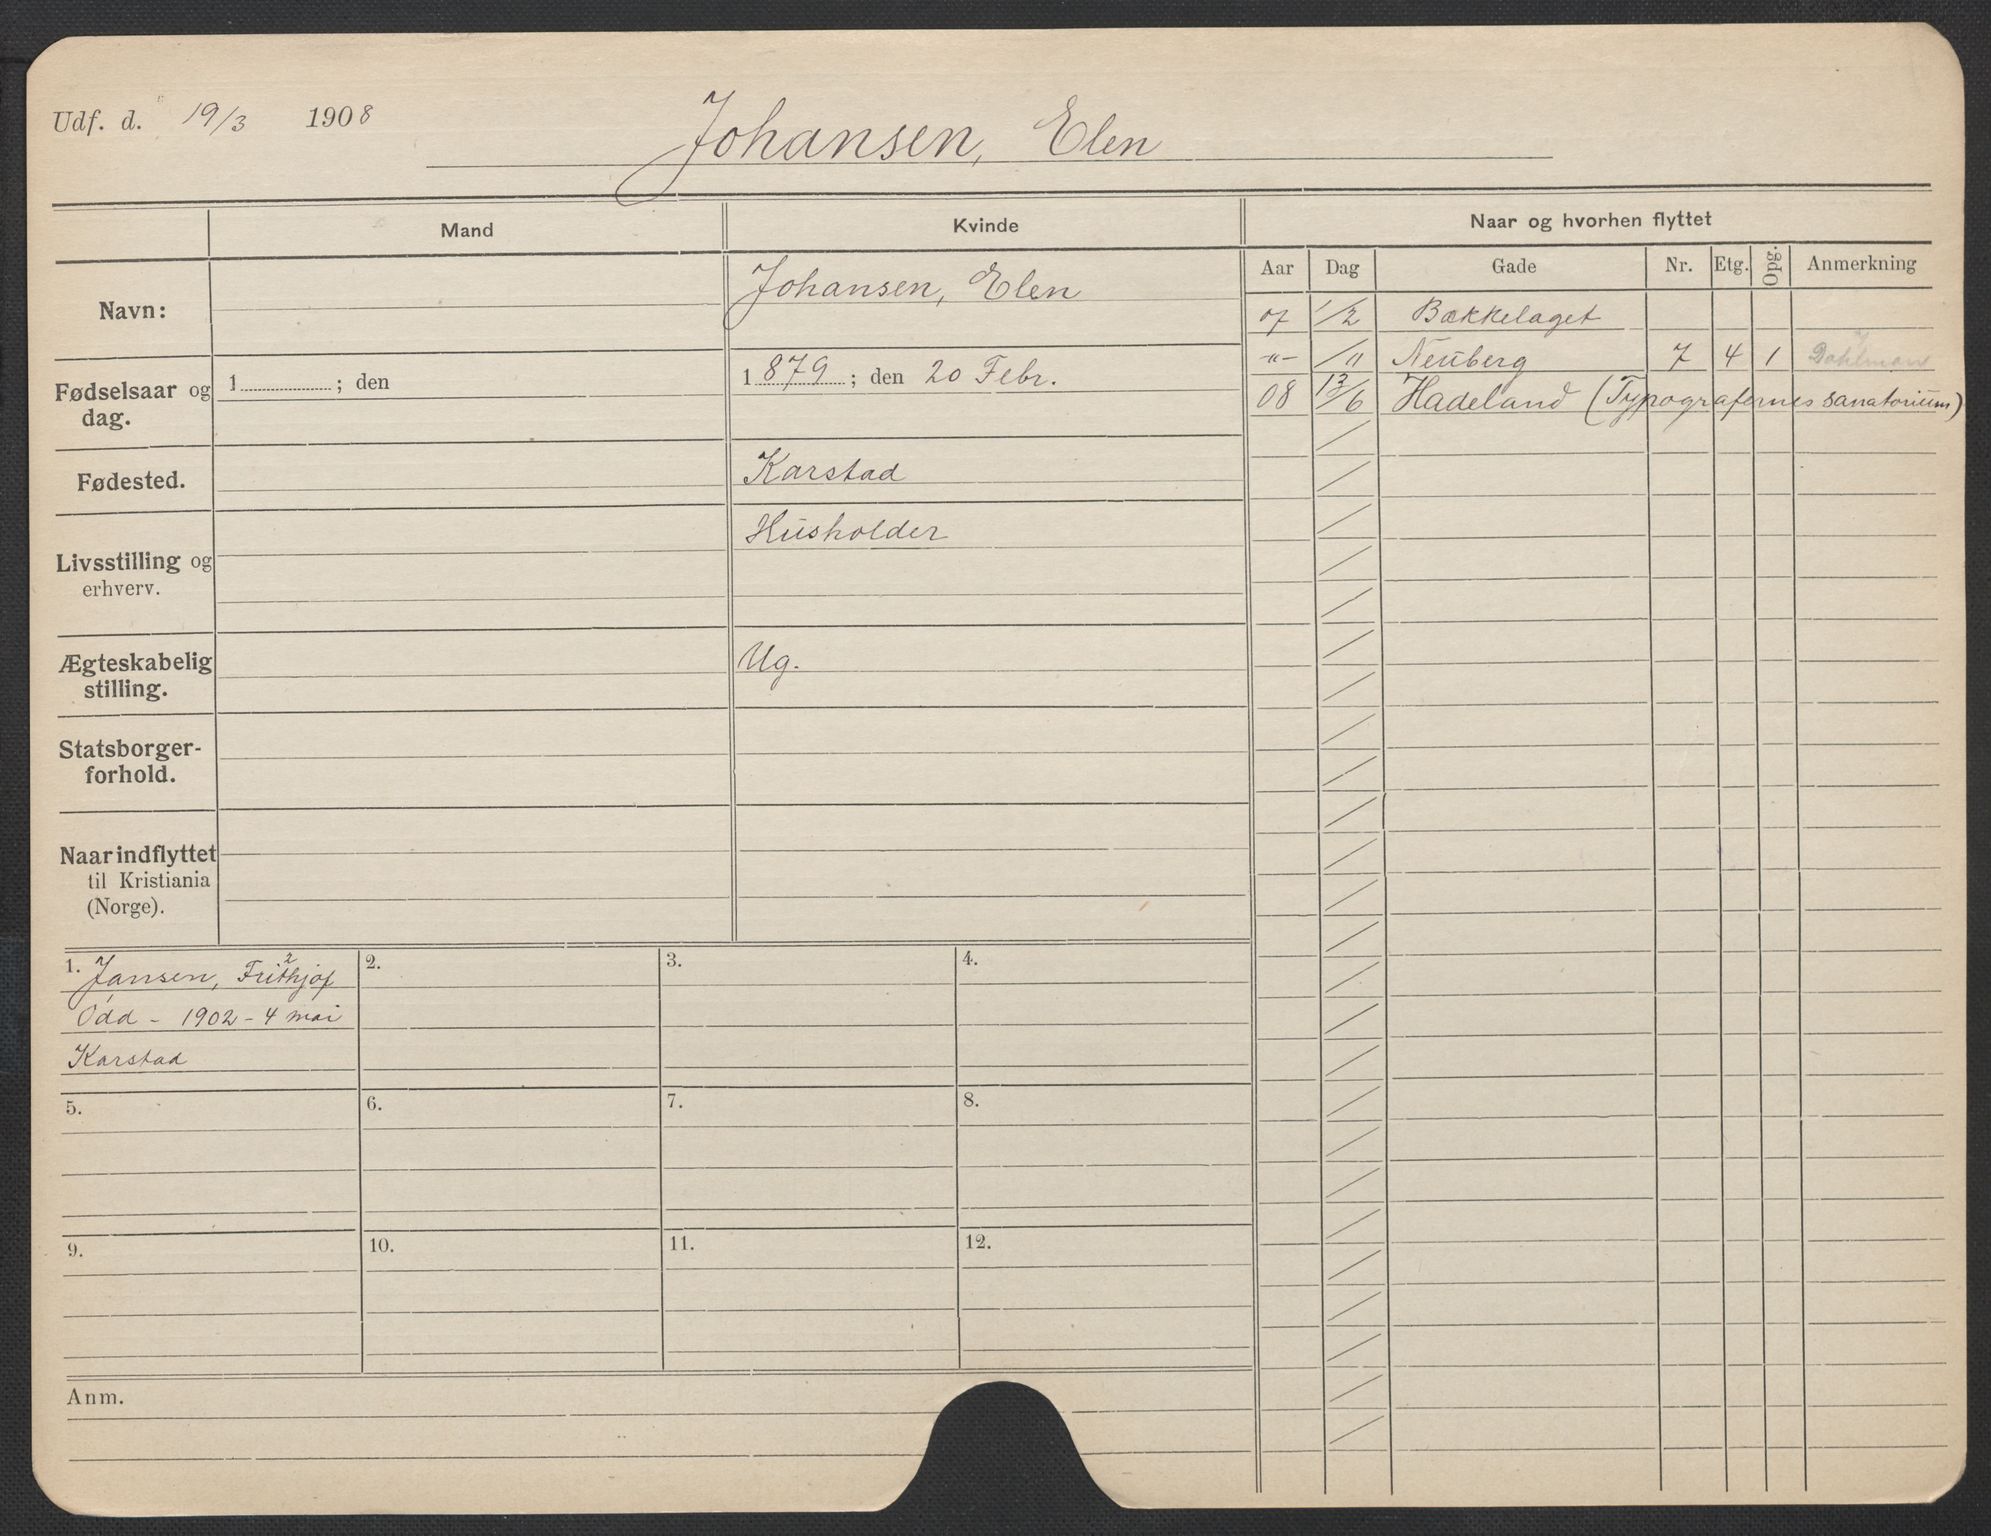 Udf. d. 19/3 1908
Johansen, Elen
Mand
Kvinde
Naar og hvorhen flyttet
Aar Dag Gade Nr. Etg. Opg. Anmerkning
Navn:
Johansen, Elen
07 1/2 Bækkelaget
-"- /11 Neuberg 7 4 1
08 13/6 Hadeland (Typografernes sanatorium)
Fødselsaar og dag.
1 ; den
1879 ; den 20 Febr.
Fødested.
Karstad
Livsstilling og
erhverv.
Husholder
Ægteskabelig
stilling.
Ug.
Statsborger-
forhold.
Naar indflyttet
til Kristiania
(Norge).
1. Jansen, Frithjof 2
Odd - 1902 - 4 mai
Karstad
2.
3.
4.
5.
6.
7.
8.
9.
10.
11.
12.
Anm.